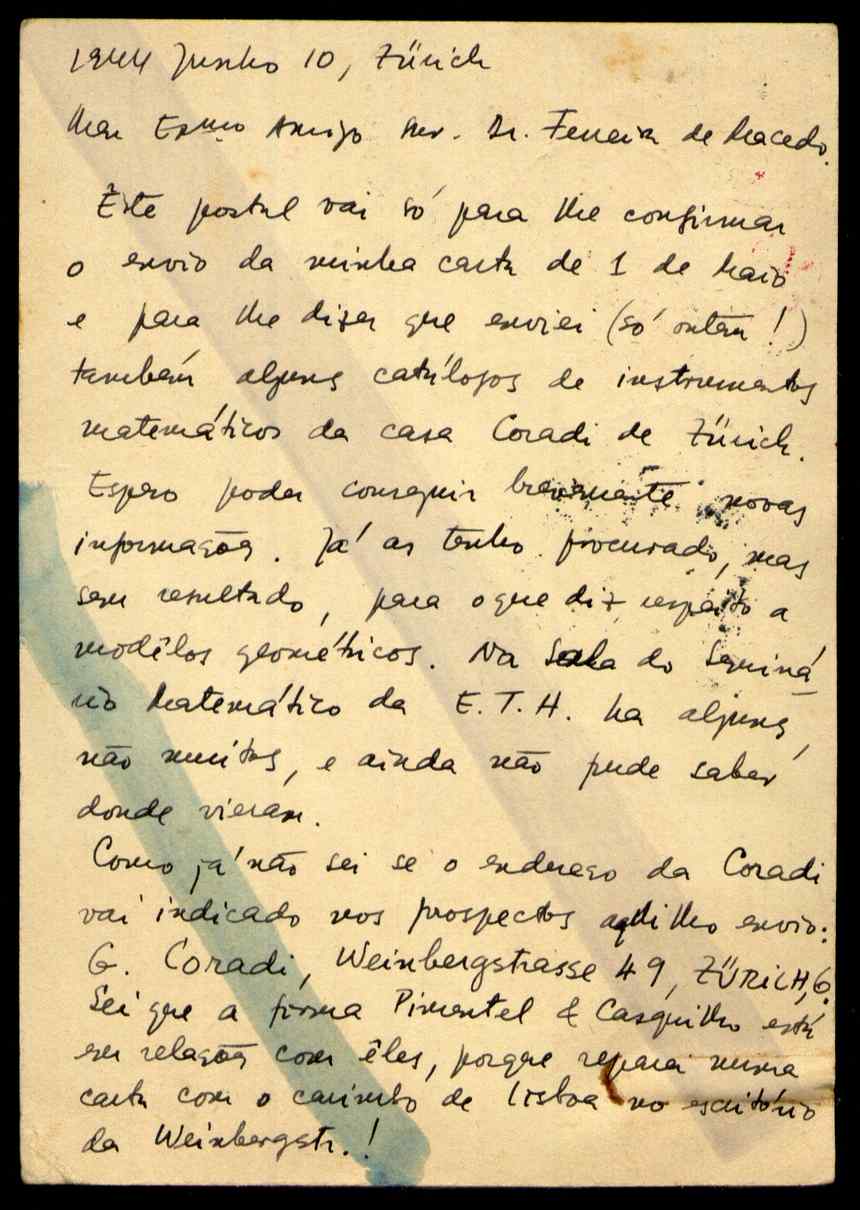 1944 Junho 10, Zürich
Meu Exmo Amigo Snr. Dr. Ferreira de Macedo,
Êste postal vai só para lhe confirmar
o envio da minha carta de 1 de Maio
e para lhe dizer que enviei (só ontem!)
também alguns catálogos de instrumentos
matemáticos da casa Coradi de Zürich.
Espero poder conseguir brevemente novas
informações. Já as tenho procurado, mas
sem resultado, para o que diz respeito a
modêlos geométricos. Na Sala do Seminá-
rio Matemático da E.T.H. ha alguns,
não muitos, e ainda não pude saber
donde vieram.
Como já não sei se o endereço da Coradi
vai indicado nos prospectos aqui lho envio:
G. Coradi, Weinbergstrasse 49, ZÜRICH, 6.
Sei que a firma Pimentel & Casquilho está
em relações com êles, porque reparei numa
carta com o carimbo de Lisboa no escritório
da Weinbergstr.!